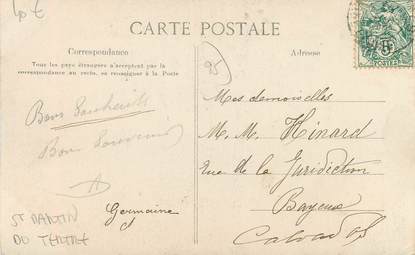 CARTE POSTALE
Correspondance
Tous les pays étrangers n'acceptent pas la
correspondance au recto, se renseigner à la Poste
Adresse
Bons Souhaits
Bon Souvenir
Germaine
ST MARTIN
DU TERTRE
95
Mes demoiselles
M. M. Hinard
Rue de la Juridiction
Bayeux
Calvados